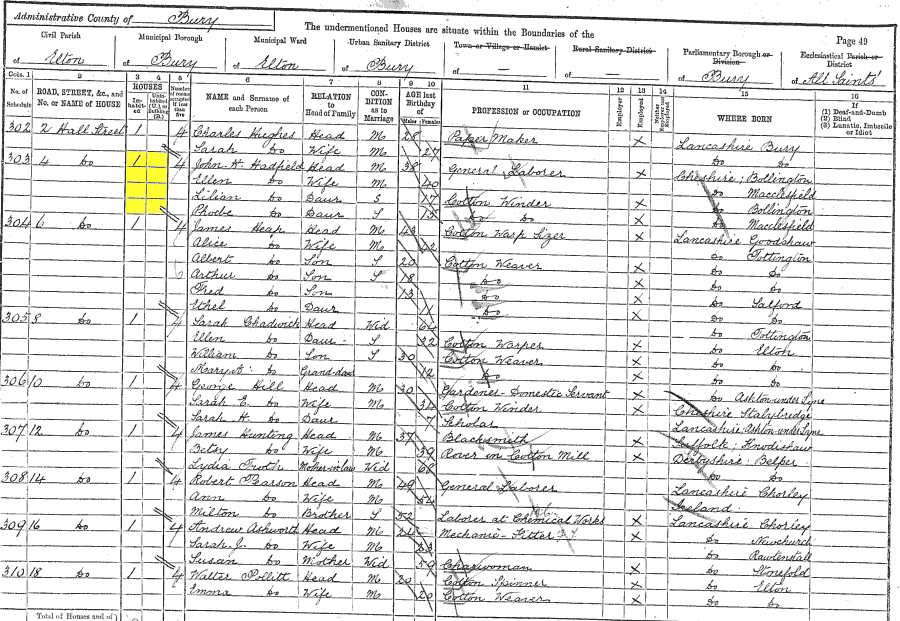 Administrative County of Bury
The undermentioned Houses are situate within the Boundaries of the
Page 49
Civil Parish of Elton
Municipal Borough of Bury
Municipal Ward of Elton
Urban Sanitary District of Bury
Town or Village or Hamlet of —
Rural Sanitary District of —
Parliamentary Borough or Division of Bury
Ecclesiastical Parish or District of All Saints
Cols. 1 2 3 4 5 6 7 8 9 10 11 12 13 14 15 16
No. of Schedule
ROAD, STREET, &c., and No. or NAME of HOUSE
HOUSES
Inhabited
NAME and Surname of each Person
RELATION to Head of Family
CONDITION as to Marriage
AGE last Birthday of
Males Females
PROFESSION or OCCUPATION
Employer
Employed
WHERE BORN
If (1) Deaf-and-Dumb (2) Blind (3) Lunatic, Imbecile or Idiot
302 2 Hall Street 1 4 Charles Hughes Head M 28 Paper Maker X Lancashire Bury
Sarah Do Wife M 27 Do Do
303 4 Do 1 4 John H. Hadfield Head M 38 General Laborer X Cheshire; Bollington
Ellen Do Wife M 40 Do Macclesfield
Lilian Do Daur S 17 Cotton Winder X Do Bollington
Phoebe Do Daur S 15 Do Do X Do Macclesfield
304 6 Do 1 4 James Heap Head M 43 Cotton Warp Sizer X Lancashire Goodshaw
Alice Do Wife M 42 Do Tottington
Albert Do Son S 20 Cotton Weaver X Do Do
Arthur Do Son S 18 Do X Do Do
Fred Do Son 13 Do X Do Salford
Ethel Do Daur 11 Do X Do Do
305 8 Do 1 4 Sarah Chadwick Head Wid 64 Do Tottington
Ellen Do Daur S 32 Cotton Warper X Do Elton
William Do Son S 30 Cotton Weaver X Do Do
Mary A. Do Grand-daur 12 Do X Do Do
306 10 Do 1 4 George Hill Head M 30 Gardener-Domestic Servant X Do Ashton-under-Lyne
Sarah E. Do Wife M 34 Cotton Winder X Cheshire Stalybridge
Sarah H. Do Daur 7 Scholar Lancashire; Ashton-under-Lyne
307 12 Do 1 4 James Hunting Head M 37 Blacksmith X Suffolk;
Betsy Do Wife M 39 Rover in Cotton Mill X Derbyshire Belper
Lydia Froth Mother-in-law Wid 68 Do Do
308 14 Do 1 4 Robert Parson Head M 49 General Laborer Lancashire Chorley
Ann Do Wife M 54 Ireland
Milton Do Brother S 52 Laborer at Chemical Works X Lancashire Chorley
309 16 Do 1 4 Andrew Ashworth Head M 24 Mechanic-Fitter X Do Newchurch
Sarah J. Do Wife M 23 Do Rawtenstall
Susan Do Mother Wid 59 Charwoman X Do Stonefold
310 18 Do 1 4 Walter Pollitt Head M 20 Cotton Spinner X Do Elton
Emma Do Wife M 20 Cotton Weaver X Do Do
Total of Houses and of